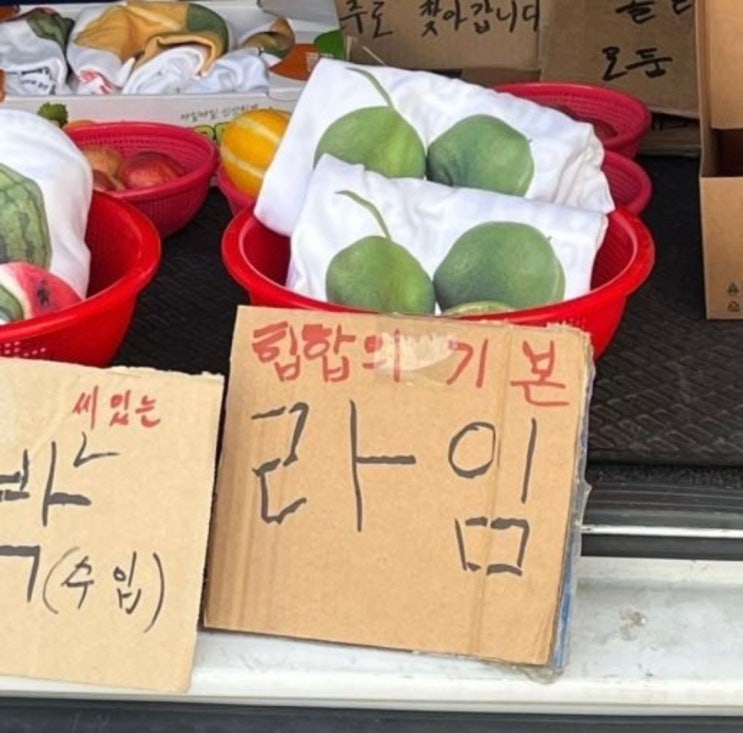 주로 찾아갑니다
모둠
힙합의 기본
라임
씨 있는
박
(수입)